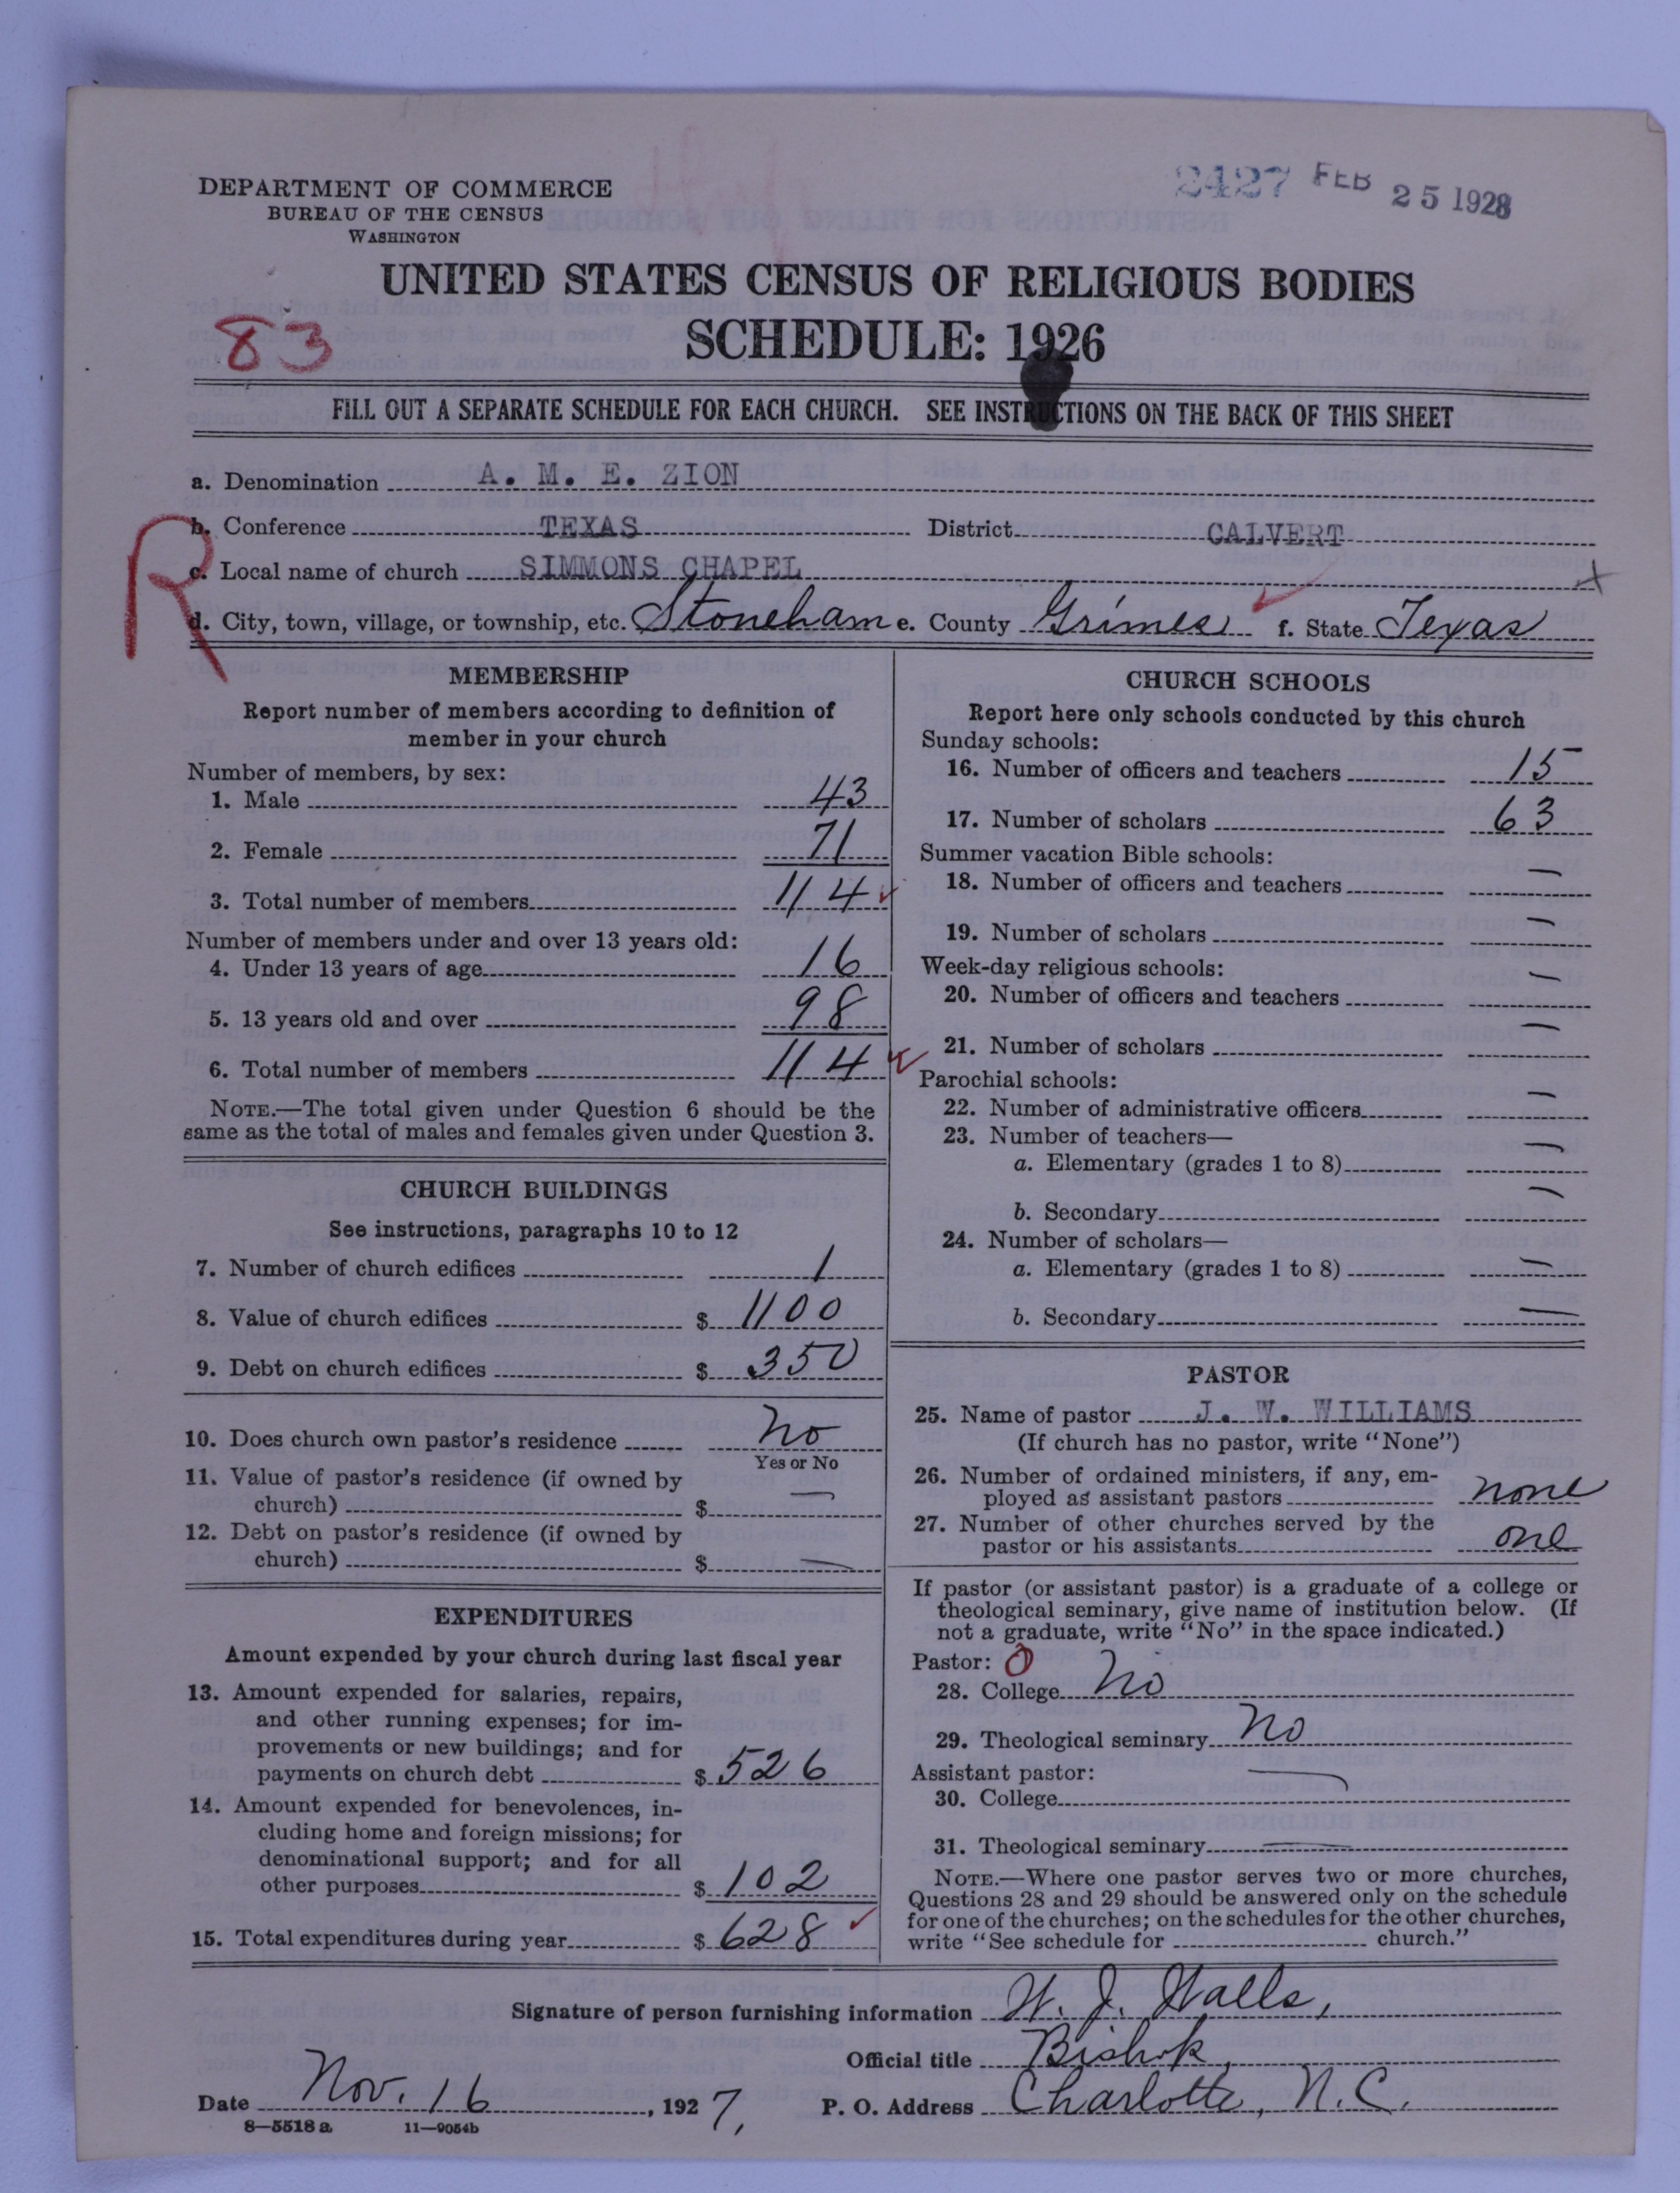 2427 FEB 25 1928
DEPARTMENT OF COMMERCE
BUREAU OF THE CENSUS
WASHINGTON
UNITED STATES CENSUS OF RELIGIOUS BODIES
83
SCHEDULE: 1926
FILL OUT A SEPARATE SCHEDULE FOR EACH CHURCH. SEE INSTRUCTIONS ON THE BACK OF THIS SHEET
a. Denomination A. M. E. ZION
R
b. Conference TEXAS District CALVERT
c. Local name of church SIMMONS CHAPEL
d. City, town, village, or township, etc. Stoneham e. County Grimes f. State Texas
MEMBERSHIP
Report number of members according to definition of
member in your church
Number of members, by sex:
1. Male 43
2. Female 71
3. Total number of members 114
Number of members under and over 13 years old:
4. Under 13 years of age 16
5. 13 years old and over 98
6. Total number of members 114
NOTE.—The total given under Question 6 should be the
same as the total of males and females given under Question 3.
CHURCH BUILDINGS
See instructions, paragraphs 10 to 12
7. Number of church edifices 1
8. Value of church edifices $ 1100
9. Debt on church edifices $ 350
10. Does church own pastor's residence no
Yes or No
11. Value of pastor's residence (if owned by
church) $ —
12. Debt on pastor's residence (if owned by
church) $ —
EXPENDITURES
Amount expended by your church during last fiscal year
13. Amount expended for salaries, repairs,
and other running expenses; for im-
provements or new buildings; and for
payments on church debt $ 526
14. Amount expended for benevolences, in-
cluding home and foreign missions; for
denominational support; and for all
other purposes $ 102
15. Total expenditures during year $ 628
CHURCH SCHOOLS
Report here only schools conducted by this church
Sunday schools:
16. Number of officers and teachers 15
17. Number of scholars 63
Summer vacation Bible schools:
18. Number of officers and teachers —
19. Number of scholars —
Week-day religious schools:
20. Number of officers and teachers —
21. Number of scholars —
Parochial schools:
22. Number of administrative officers —
23. Number of teachers—
a. Elementary (grades 1 to 8) —
b. Secondary —
24. Number of scholars—
a. Elementary (grades 1 to 8) —
b. Secondary —
PASTOR
25. Name of pastor J. W. WILLIAMS
(If church has no pastor, write "None")
26. Number of ordained ministers, if any, em-
ployed as assistant pastors none
27. Number of other churches served by the
pastor or his assistants one
If pastor (or assistant pastor) is a graduate of a college or
theological seminary, give name of institution below. (If
not a graduate, write "No" in the space indicated.)
Pastor: 0
28. College No
29. Theological seminary No
Assistant pastor:
30. College —
31. Theological seminary —
NOTE.—Where one pastor serves two or more churches,
Questions 28 and 29 should be answered only on the schedule
for one of the churches; on the schedules for the other churches,
write "See schedule for church."
Signature of person furnishing information W. J. Walls,
Official title Bishop,
Date Nov. 16, 1927, P. O. Address Charlotte, N.C.
8—5518 a 11—9054b